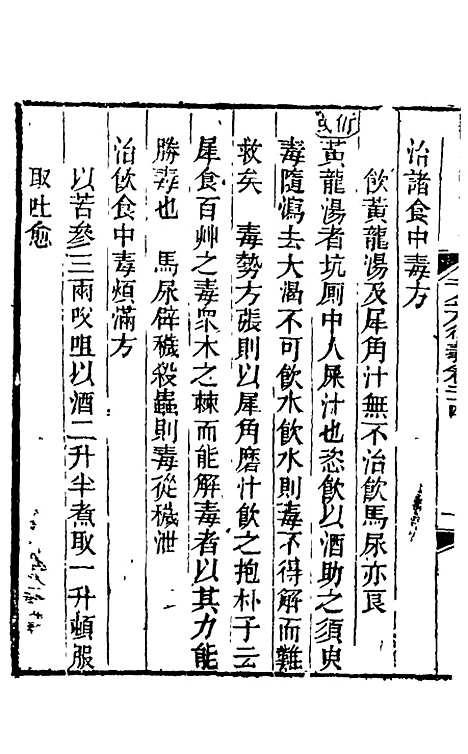 治諸食中毒方
飲黃龍湯及犀角汁無不治飲馬尿亦良
衍曰
黃龍湯者坑厠中人屎汁也恣飲以酒助之須臾
毒隨瀉去大渴不可飲水飲水則毒不得解而難
救矣　毒勢方張則以犀角磨汁飲之抱朴子云
犀食百艸之毒眾木之棘而能解毒者以其力能
勝毒也　馬尿辟穢殺蟲則毒從穢泄
治飲食中毒煩滿方
以苦參三兩㕮咀以酒二升半煮取一升頓服
取吐愈